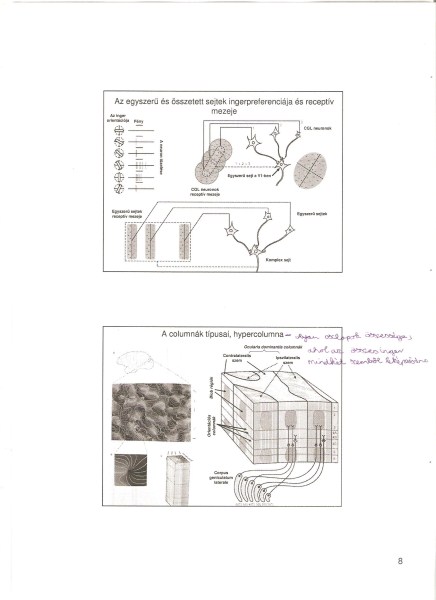 Az egyszerű és összetett sejtek ingerpreferenciája és receptív
mezeje
Az inger
orientációja
Fény
A neuron tüzelése
CGL neuronok
Egyszerű sejt a V1-ben
CGL neuronok
receptív mezeje
Egyszerű sejtek
receptív mezeje
Egyszerű sejtek
Komplex sejt
A columnák típusai, hypercolumna –
olyan oszlopok összessége,
ahol az összes inger
mindkét szemből
Ocularis dominantia columnák
Contralateralis
szem
Ipsilateralis
szem
Blob régiók
Orientációs
columnák
Corpus
geniculatum
laterale
8